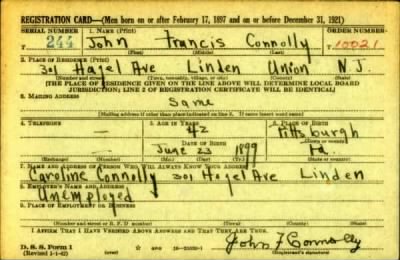 REGISTRATION CARD—(Men born on or after February 17, 1897 and on or before December 31, 1921)
SERIAL NUMBER 1. NAME (Print) ORDER NUMBER
244 John Francis Connolly 10021
(First) (Middle) (Last)
2. PLACE OF RESIDENCE (Print)
301 Hazel Ave Linden Union N.J.
(Number and street) (Town, township, village, or city) (County) (State)
[THE PLACE OF RESIDENCE GIVEN ON THE LINE ABOVE WILL DETERMINE LOCAL BOARD
JURISDICTION; LINE 2 OF REGISTRATION CERTIFICATE WILL BE IDENTICAL]
3. MAILING ADDRESS
Same
[Mailing address if other than place indicated on line 2. If same insert word same]
4. TELEPHONE 5. AGE IN YEARS 6. PLACE OF BIRTH
— 42 Pittsburgh
DATE OF BIRTH (Town or county)
June 23 1899 Pa.
(Exchange) (Number) (Mo.) (Day) (Yr.) (State or country)
7. NAME AND ADDRESS OF PERSON WHO WILL ALWAYS KNOW YOUR ADDRESS
Caroline Connolly 301 Hazel Ave Linden
8. EMPLOYER'S NAME AND ADDRESS
Unemployed
9. PLACE OF EMPLOYMENT OR BUSINESS
(Number and street or R. F. D. number) (Town) (County) (State)
I AFFIRM THAT I HAVE VERIFIED ABOVE ANSWERS AND THAT THEY ARE TRUE.
D. S. S. Form 1
(Revised 1-1-42) GPO John F Connolly
(Registrant's signature)